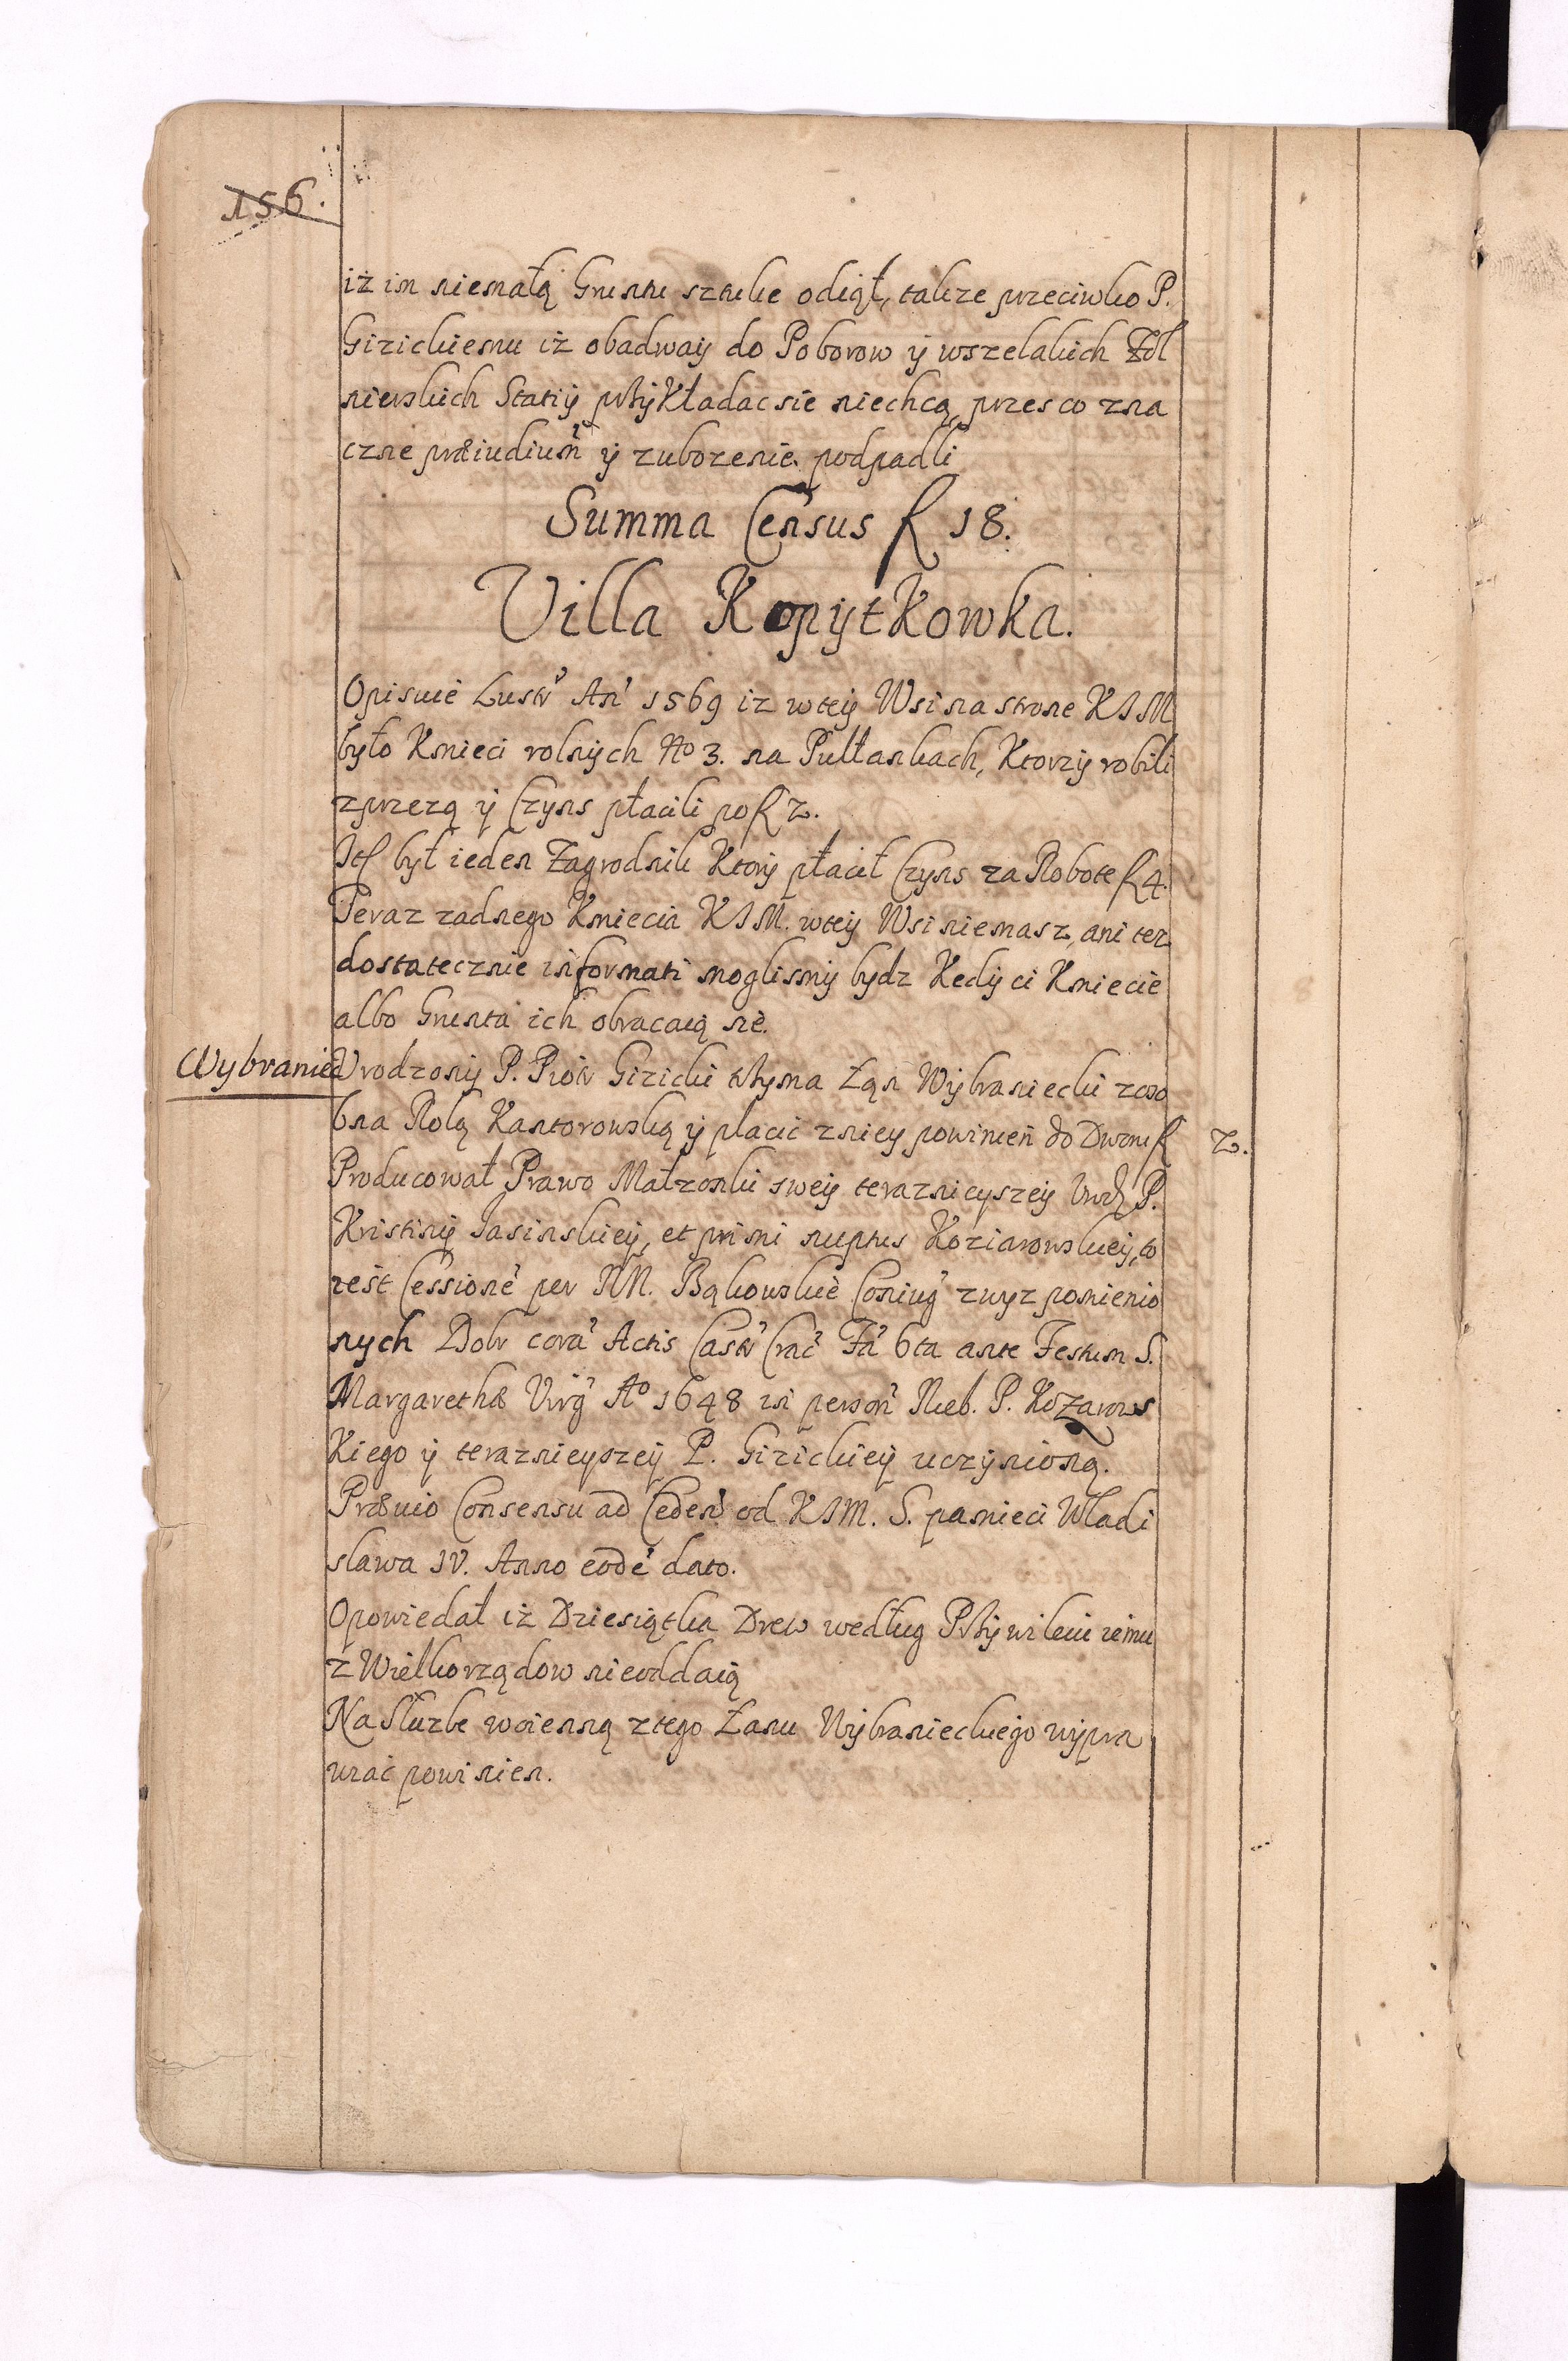 156.
iż im niemałą Gruntu sztuke odiął, takze przeciwko P.
Girickiemu iż obadway do Poborow ÿ wszelakich Żoł
nierskich Statiÿ przÿkładac sie niechcą, przes co zna
czne præiudiũm ÿ zubozenie podpadli
Summa Census f 18.
Villa Kopytkowka.
Opisuie Lustr Aň 1569 iz wteÿ Wsi na strone KJM
było Kmieci rolnÿch No 3. na Pułłankach, Ktorzÿ robili
zprzezą ÿ Czyns płacili po f 2.
Itẽ był ieden Zagrodnik Ktorÿ płacił Czyns za Robote f 4.
Teraz zadnego Kmiecia KJM. wteÿ Wsi niemasz, ani tez
dostatecznie informati moglismÿ bydz Kedÿ ci Kmiecie
albo Grunta ich obracaią sie.
Wybraniec
Urodzonÿ P. Piotr Giricki trzyma Łąn Wÿbraniecki zoso
bna Rolą Kantorowską ÿ płacic zniey powinien do Dworu f 2.
Producował Prawo Małzonki sweÿ teraznieyszeÿ Urodz P.
Kristinÿ Jasinskieÿ, et primi nuptus Koziarowskieÿ, to
iest Cessionẽ per NN. Bąkowskie Coniug̃ zwyz pomienio
nych Dobr corã Actis Castr̃ Crač Fã 6ta ante Festum S.
Margarethæ Virg̃ Ao 1648 in person̄ Neb. P. Kozarows
kiego ÿ teraznieyszeÿ P. Girickieÿ uczÿnioną.
Præuio Consensu ad Ceden̄d od KJM. S. pamieci Wladi
slawa IV. Anno eodẽ dato.
Opowiedał iż Dziesiątka Drew według Przÿwileiu iemu
z Wielkorządow nieoddaią
Na Służbe woienną ztego Łanu Wÿbranieckiego wÿpra
wiać powinien.